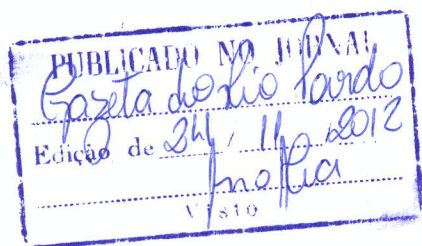 PUBLICADO NO JORNAL
Gazeta do Rio Pardo
Edição de 24 / 11 / 2012
VISTO